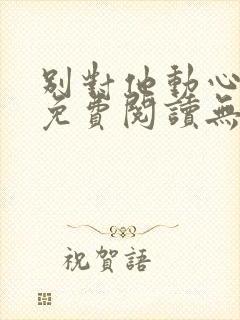 別對他動心
免費閱讀無
祝賀語